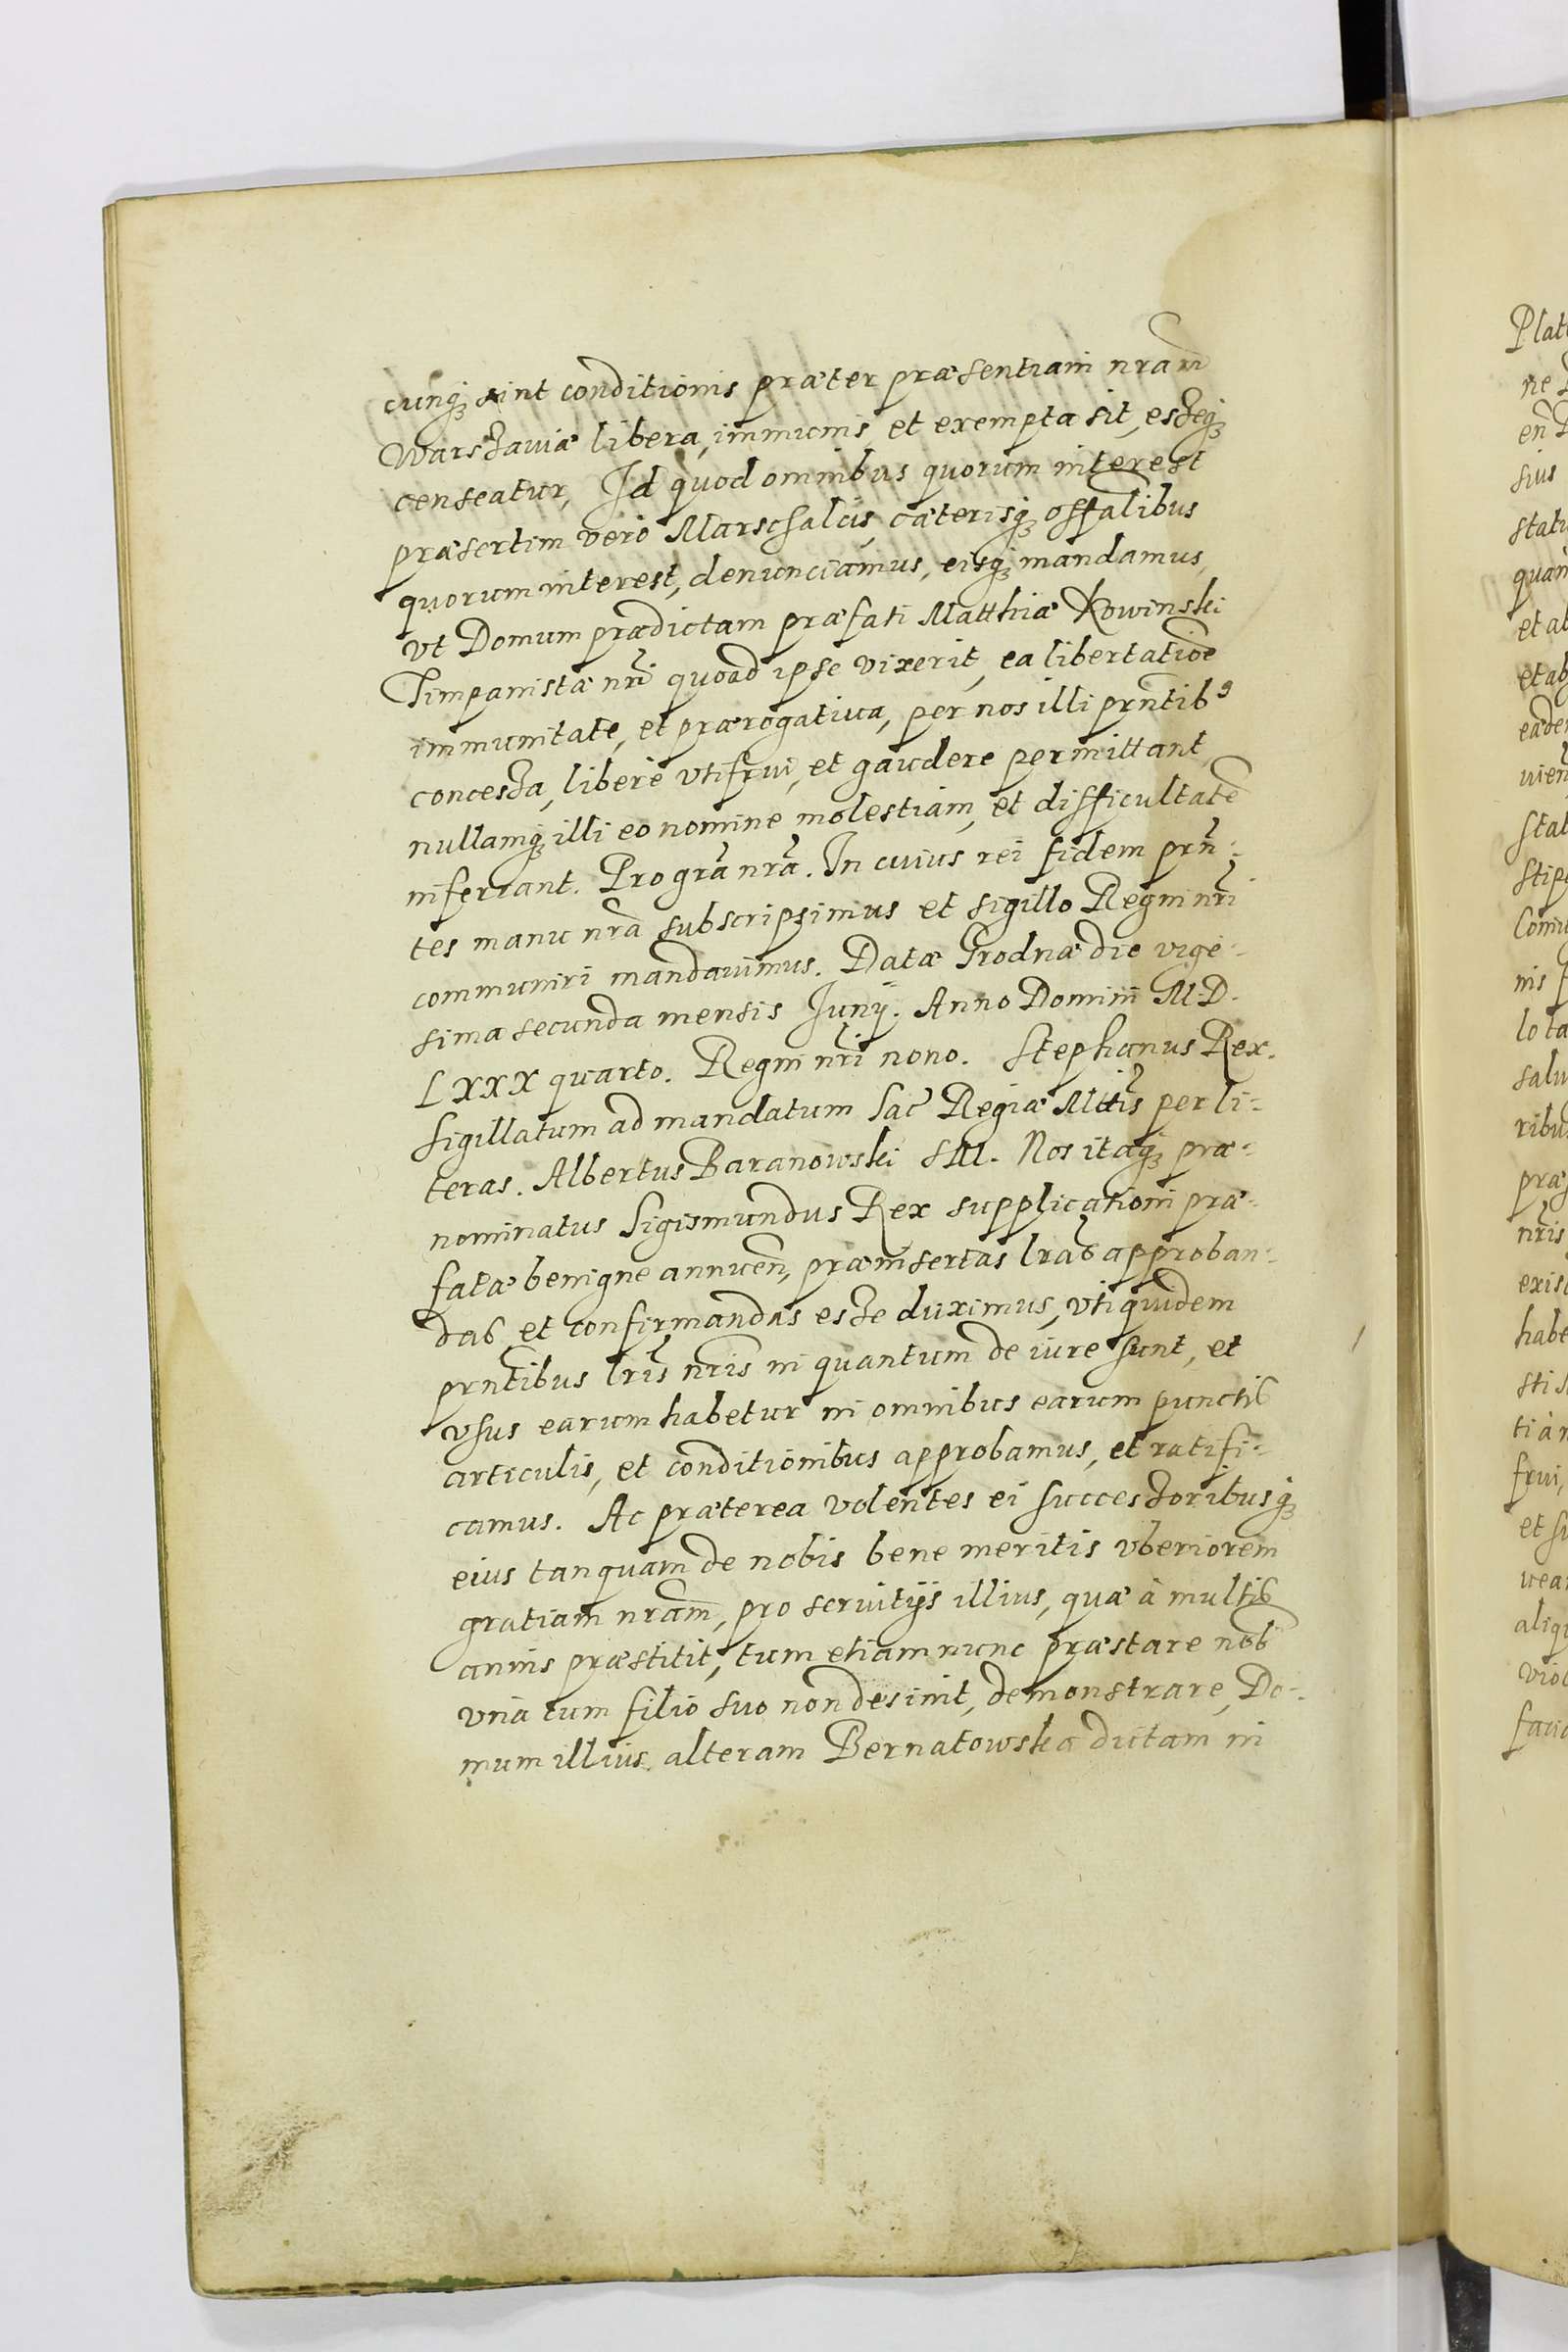 cunq₃ sint conditionis præter præsentiam nram̃
Warssauiæ libera, immunis, et exempta sit, esseq₃
censeatur, Id quod omnibus quorum interest
præsertim vero Marschalcis, cæterisq₃ offalibus
quorum interest, denunciamus, eisq₃ mandamus,
vt Domum prædictam præfati Matthiæ Kowinski
Timpanistæ nr̃i quoad ipse vixerit, ea libertatiõe
immunitate, et prærogatiua, per nos illi prñtibꝰ
concessa, liberè vtifrui, et gaudere permittant,
nullamq₃ illi eo nomine molestiam, et difficultatẽ
inferrant. Pro grã nrã. In cuius rei fidem prñ-
tes manu nrã subscripsimus et sigillo Regni nr̃i
communiri mandauimus. Datæ Grodnæ die vige-
sima secunda mensis Junÿ. Anno Domini M.D.
LXXX quarto. Regni nr̃i nono. Stephanus Rex.
Sigillatum ad mandatum Sac̃ Regiæ Mttis̃ per li-
teras. Albertus Baranowski SM. Nos itaq₃ præ-
nominatus Sigismundus Rex supplicationi præ-
fatæ benigne annuen̄, præinsertas lrãs approban-
das et confirmandas esse duximus, vti quidem
prñtibus lrĩs nr̃is in quantum de iure sunt, et
vsus earum habetur in omnibus earum punctis
articulis, et conditionibus approbamus, et ratifi-
camus. Ac præterea volentes ei successoribusq₃
eius tanquam de nobis bene meritis vberiorem
gratiam nram̃, pro seruitÿs illius, quæ à multis
annis præstitit, tum etiam nunc præstare nob̃
vnà cum filio suo non desinit, demonstrare, Do-
mum illius alteram Bernatowska dictam in